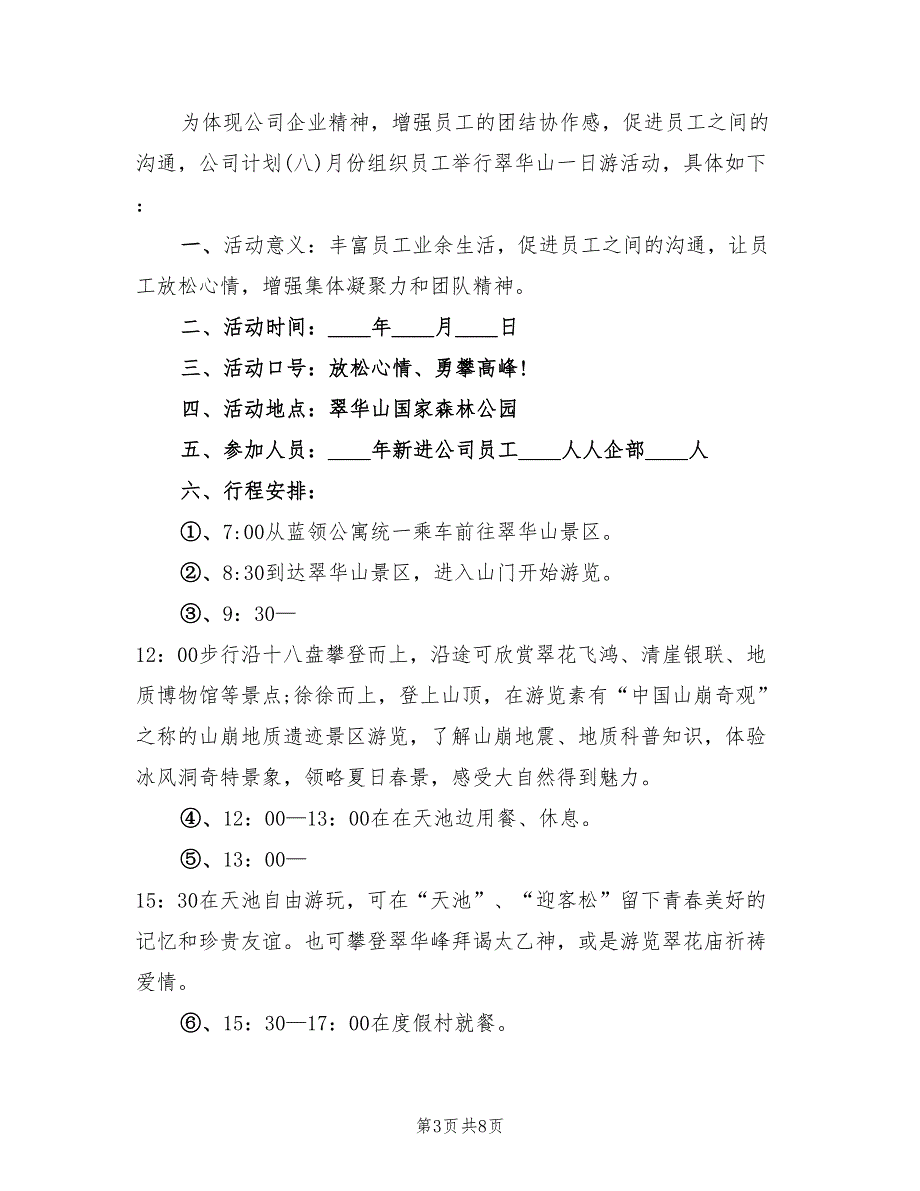 为体现公司企业精神，增强员工的团结协作感，促进员工之间的
沟通，公司计划(八)月份组织员工举行翠华山一日游活动，具体如下
：
一、活动意义：丰富员工业余生活，促进员工之间的沟通，让员
工放松心情，增强集体凝聚力和团队精神。
二、活动时间：____年____月____日
三、活动口号：放松心情、勇攀高峰!
四、活动地点：翠华山国家森林公园
五、参加人员：____年新进公司员工____人人企部____人
六、行程安排：
①、7:00从蓝领公寓统一乘车前往翠华山景区。
②、8:30到达翠华山景区，进入山门开始游览。
③、9：30—
12：00步行沿十八盘攀登而上，沿途可欣赏翠花飞鸿、清崖银联、地
质博物馆等景点;徐徐而上，登上山顶，在游览素有“中国山崩奇观”
之称的山崩地质遗迹景区游览，了解山崩地震、地质科普知识，体验
冰风洞奇特景象，领略夏日春景，感受大自然得到魅力。
④、12：00—13：00在在天池边用餐、休息。
⑤、13：00—
15：30在天池自由游玩，可在“天池”、“迎客松”留下青春美好的
记忆和珍贵友谊。也可攀登翠华峰拜谒太乙神，或是游览翠花庙祈祷
爱情。
⑥、15：30—17：00在度假村就餐。
第3页共8页